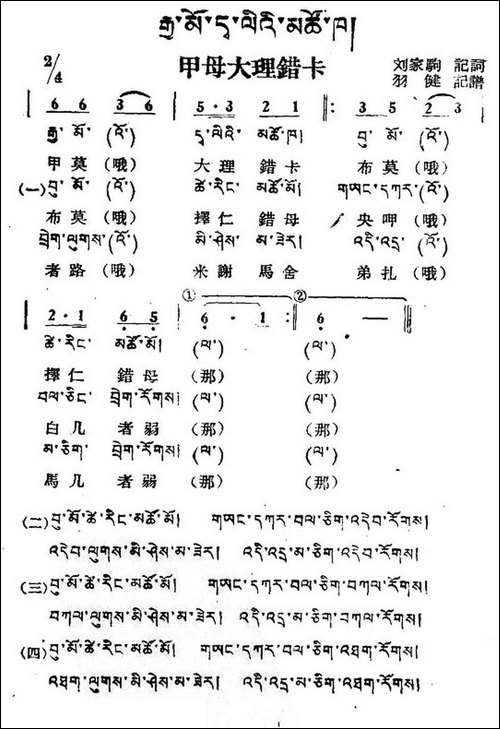 རྒྱ་མོ་དྭ་ལིའི་མཚོ་ཁ།
甲母大理錯卡
2/4
刘家駒 記詞
羽健 記譜
6 6 3 6 5·3 2 1 3 5 2 3
རྒྱ་མོ་(འོ་) དྭ་ལིའི་ མཚོ་ཁ། བུ་མོ་(འོ་)
甲莫(哦) 大理 錯卡 布莫(哦)
(一) བུ་མོ་(འོ་) ཚེ་རིང་ མཚོ་མོ། གཡང་དཀར་(འོ་)
布莫(哦) 擇仁 錯母 央呷(哦)
བྲེག་ལུགས་(འོ་) མི་ཤེས་ མ་ཟེར། འདི་འདྲ་(འོ་)
者路(哦) 米謝 馬舍 弟扎(哦)
① ②
2·1 6 5 6·1 6 —
ཚེ་རིང་ མཚོ་མོ། (ལ་) (ལ་)
擇仁 錯母 (那) (那)
བལ་ཅིང་ བྲེག་རོགས། (ལ་) (ལ་)
白几 者弱 (那) (那)
མ་ཅིག་ བྲེག་རོགས། (ལ་) (ལ་)
馬几 者弱 (那) (那)
(二) བུ་མོ་ཚེ་རིང་མཚོ་མོ། གཡང་དཀར་བལ་ཅིག་འདེབ་རོགས།
འདེབ་ལུགས་མི་ཤེས་མ་ཟེར། འདི་འདྲ་མ་ཅིག་འདེབ་རོགས།
(三) བུ་མོ་ཚེ་རིང་མཚོ་མོ། གཡང་དཀར་བལ་ཅིག་བཀལ་རོགས།
བཀལ་ལུགས་མི་ཤེས་མ་ཟེར། འདི་འདྲ་མ་ཅིག་བཀལ་རོགས།
(四) བུ་མོ་ཚེ་རིང་མཚོ་མོ། གཡང་དཀར་བལ་ཅིག་འཐག་རོགས།
འཐག་ལུགས་མི་ཤེས་མ་ཟེར། འདི་འདྲ་མ་ཅིག་འཐག་རོགས།